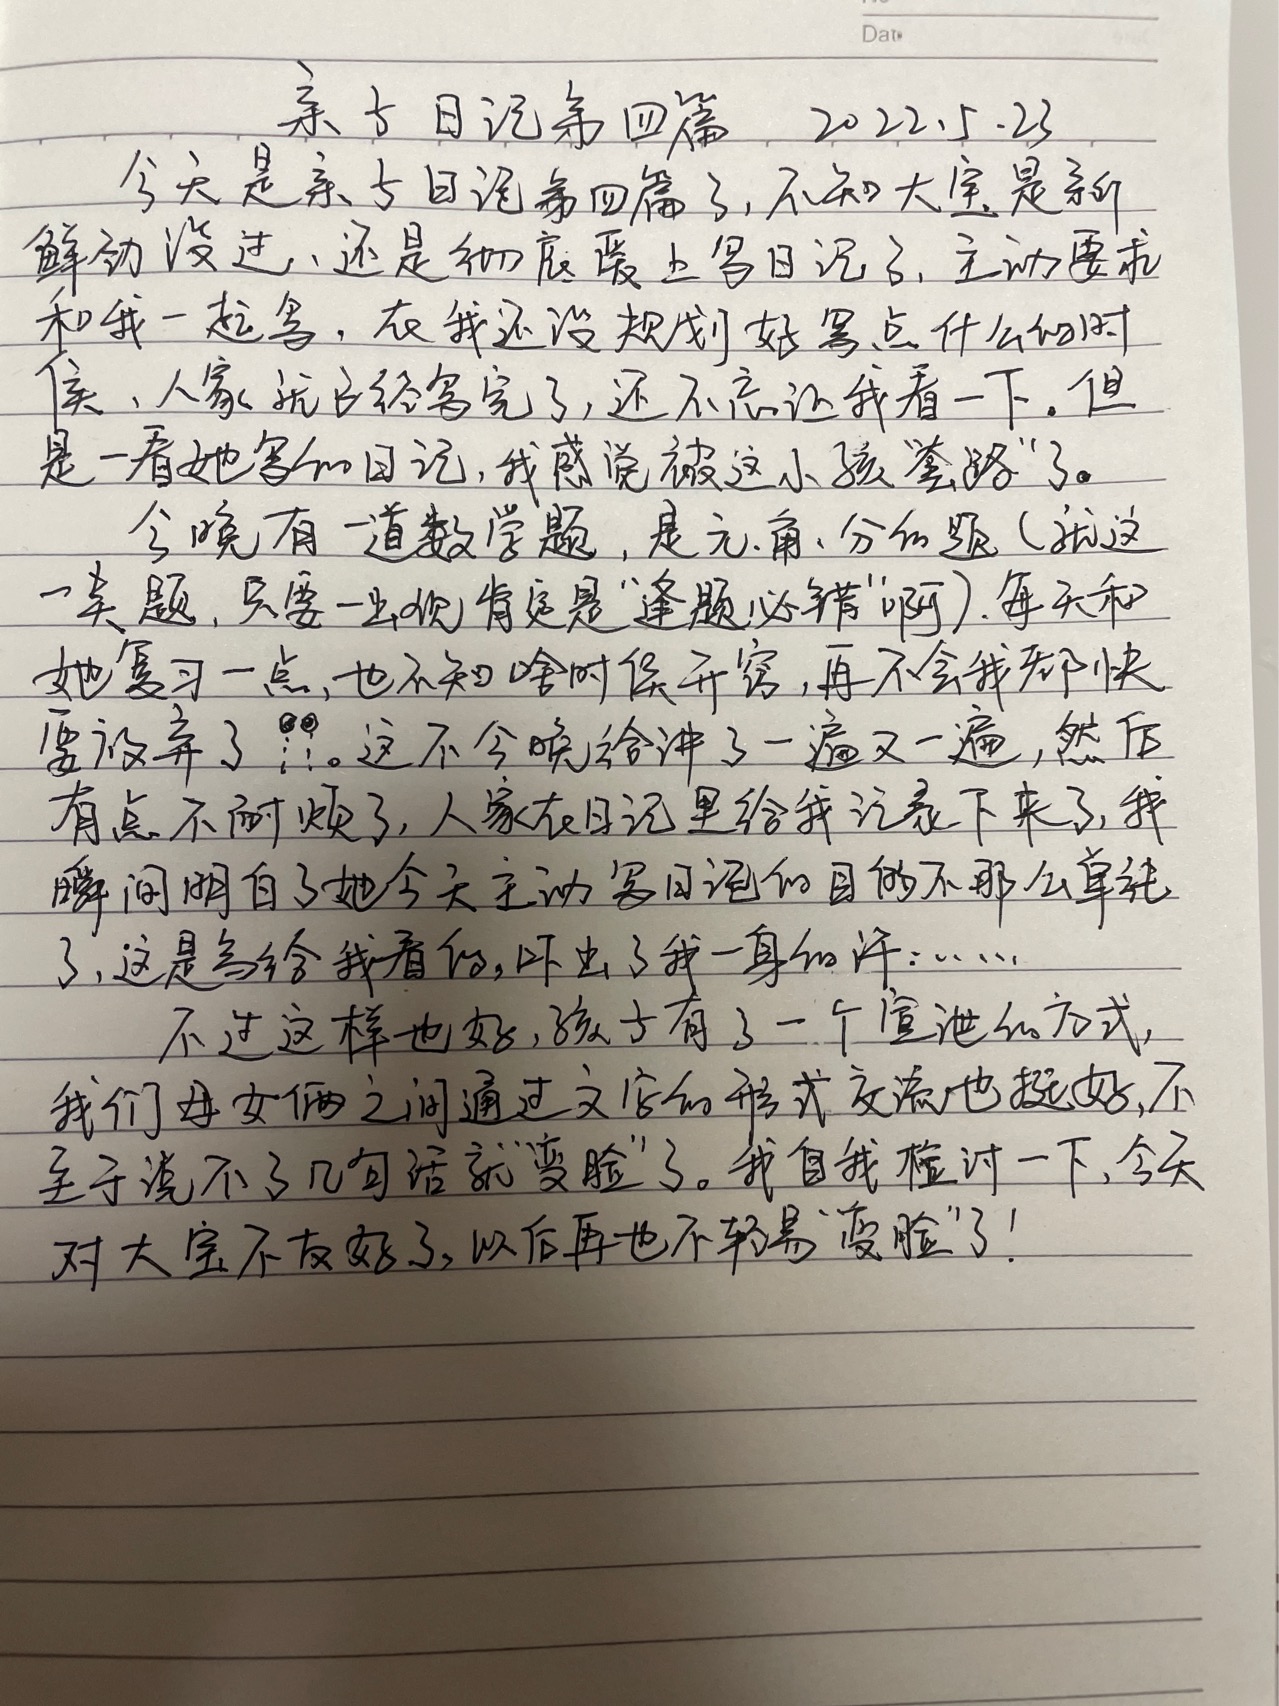 Date
亲子日记第四篇 2022.5.23
今天是亲子日记第四篇了,不知大宝是新
鲜劲没过、还是彻底爱上写日记了,主动要求
和我一起写,在我还没规划好写点什么的时
侯、人家就已经写完了,还不忘让我看一下。但
是一看她写的日记,我感觉被这小孩“套路”了。
今晚有一道数学题,是元、角、分的题(就这
一类题,只要一出现肯定是“逢题必错”啊).每天和
她复习一点,也不知啥时侯开窍,再不会我都快
要放弃了 。这不今晚给讲了一遍又一遍,然后
有点不耐烦了,人家在日记里给我记录下来了,我
瞬间明白了她今天主动写日记的目的不那么单纯
了,这是写给我看的,吓出了我一身的汗:……
不过这样也好,孩子有了一个宣泄的方式,
我们母女俩之间通过文字的形式交流也挺好,不
至于说不了几句话就“变脸”了。我自我检讨一下、今天
对大宝不友好了,以后再也不轻易“变脸”了!